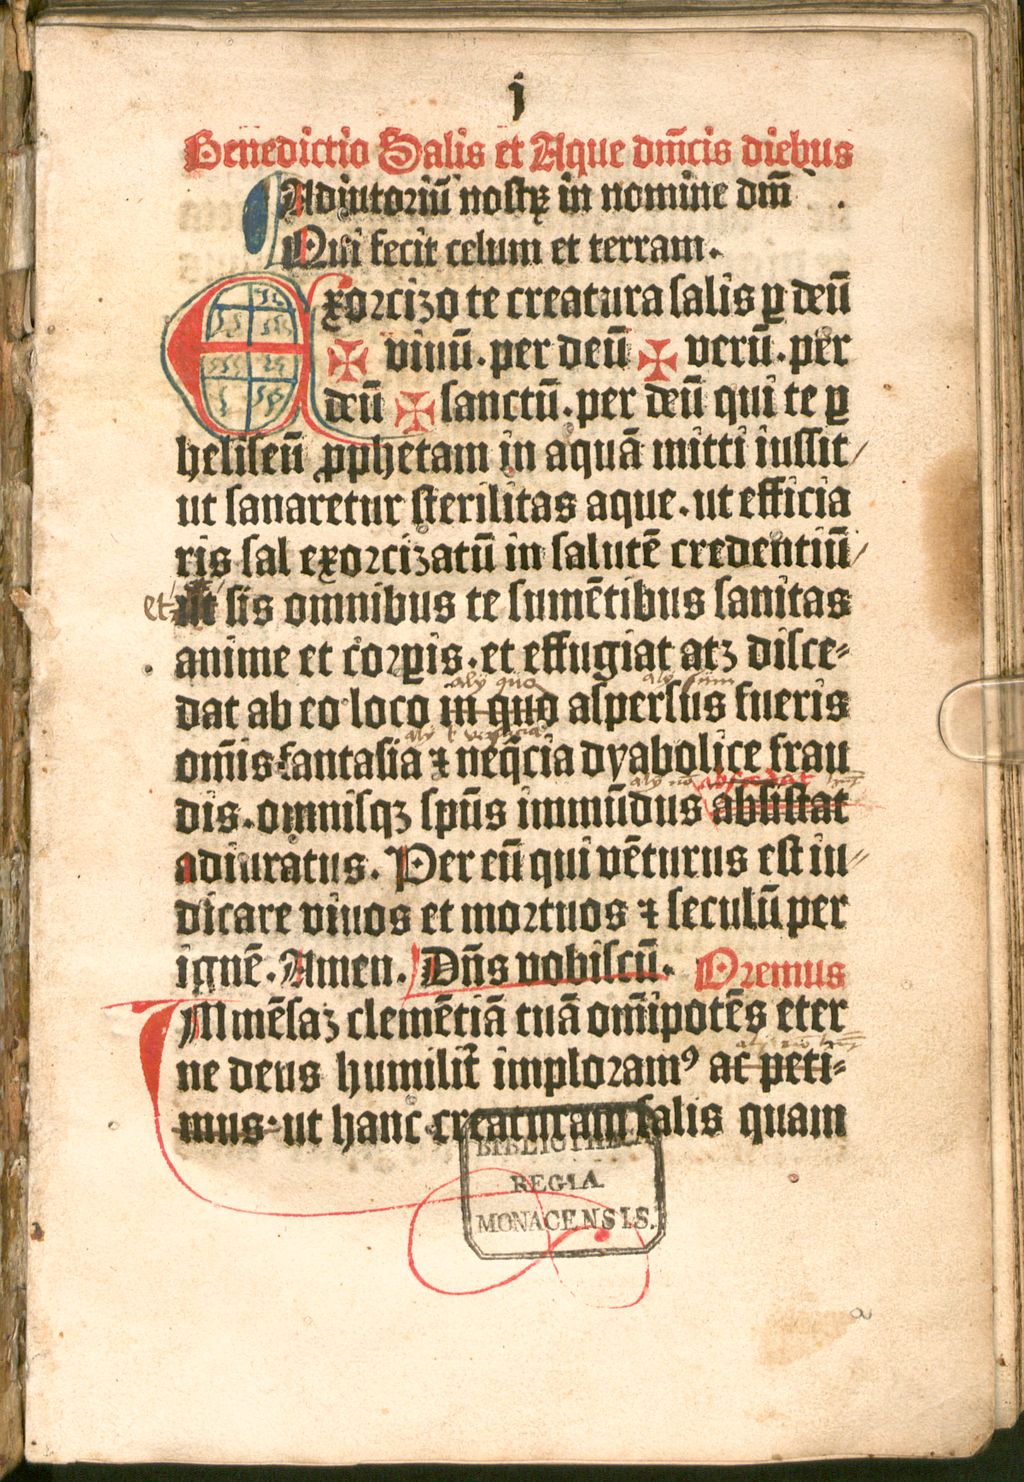 j
Benedictio Salis et Aque dm̄cis diebus
Adiutoriū nostrꝝ in nomine dm̄
Qui fecit celum et terram.
Exorcizo te creatura salis ꝑ deū
✠ viuū. per deū ✠ verū. per
deū ✠ sanctū. per deū qui te ꝑ
heliseū ꝓphetam in aquā mitti iussit/
ut sanaretur sterilitas aque. ut efficia
ris sal exorcizatū in salutē credentiū/
et ut sis omnibus te sumētibus sanitas
anime et corꝑis. et effugiat atqꝫ disce⸗
aly quo aly sum
dat ab eo loco in quo aspersus fueris
om̄is fantasia ⁊ neq̄cia dyabolice frau
aly absedat
dis. omnisqꝫ sp̄us immūdus absistat
adiuratus. Per eū qui vēturus est iu⸗
dicare viuos et mortuos ⁊ seculū per
ignē. Amen. Dn̄s vobiscū. Oremus
Immēsaꝫ clemētiā tuā om̄ipotēs eter
ne deus humilit̄ imploramꝰ ac peti⸗
mus. ut hanc creaturam salis quam
BIBLIOTHECA
REGIA
MONACENSIS.
a